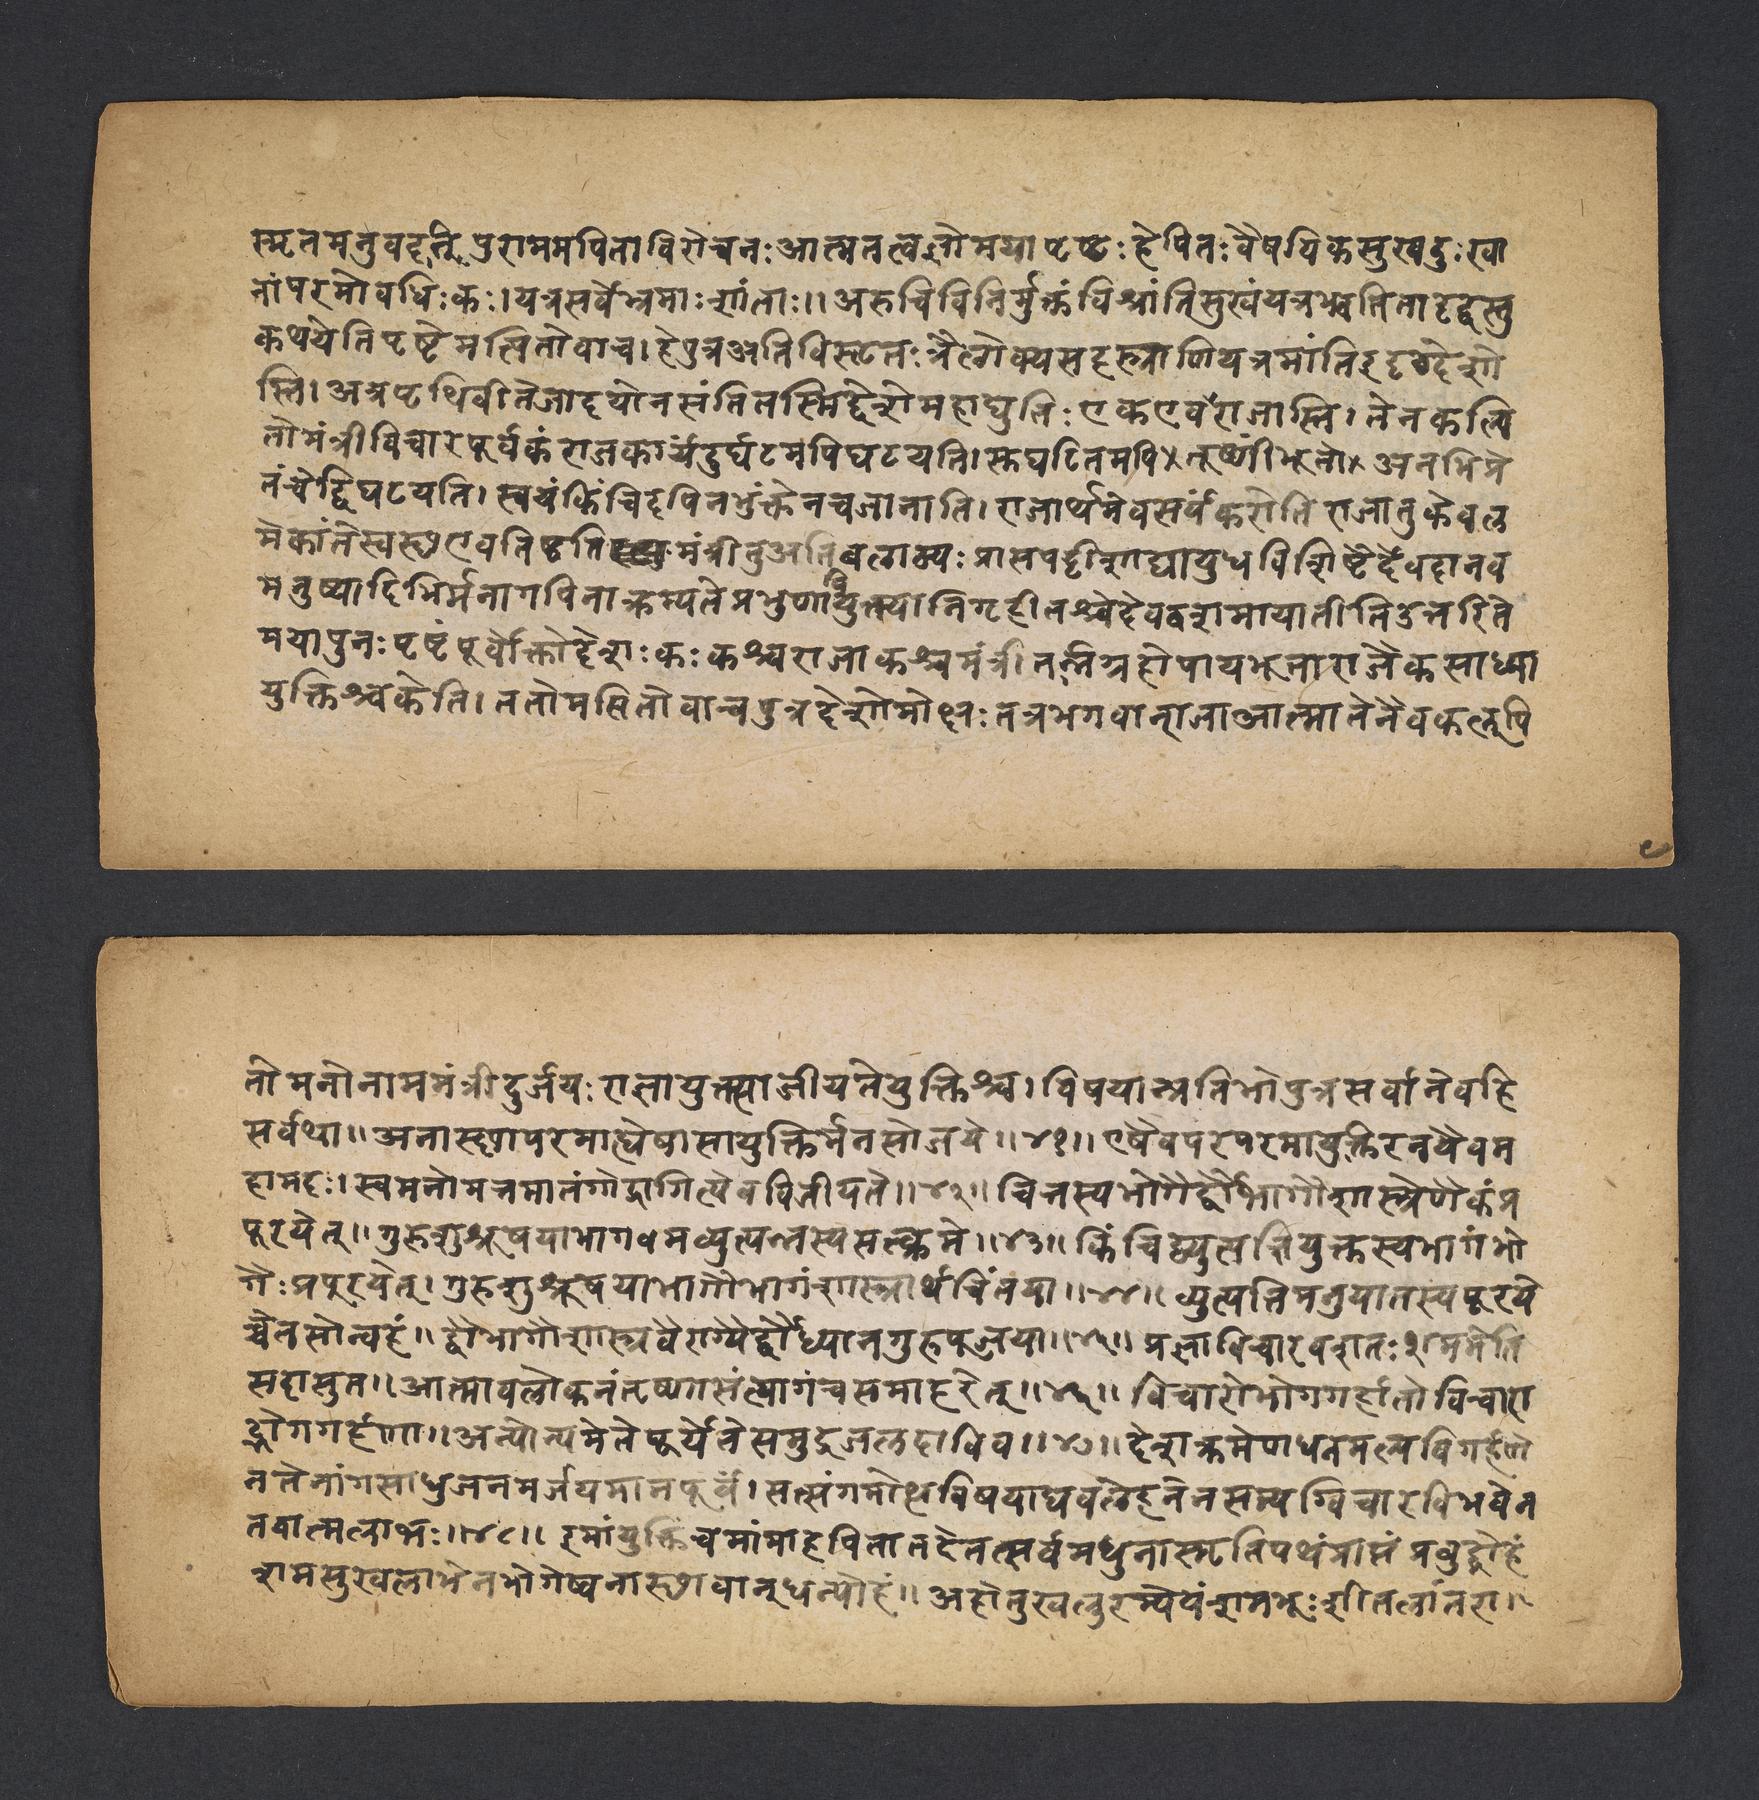 स्मृतमनुवदति पुरामममपिताविरोचनः आत्मतत्वज्ञोमयापृष्टः हेपितः वैषयिकसुखदुःखा
नांपरमोवधिः कः । यत्रसर्वेभ्रमाः शांताः ।। अरुचिविनिर्मुक्तं विश्रांतिसुखंयत्रभवतितादृग्वस्तु
कथयेतिपृष्टेमत्पितोवाच । हेपुत्रअतिविस्तृतः त्रैलोक्यसहस्त्राणियत्रमांतिईदृग्देशो
स्ति । अत्रपृथिवीतेजादयोनसंतितस्मिद्देशेमहाद्युतिः एकएवराजास्ति । तेनकल्पि
तोमंत्रीविचारपूर्वकंराजकार्यंदुर्घटमपिघटयति । सघटितमपि तूष्णींभूतो अनभिप्रे
तंचेद्विघटयति । स्वयंकिंचिदपिनभुंक्तेनचजानाति । राजार्थमेवसर्वंकरोति राजातुकेवल
मेकांतेस्वस्थएवतिष्टति मंत्रीतुअतिबलाढ्यः प्रासपट्टीशाद्यायुधविशिष्टैर्देवदानव
मनुष्यादिभिर्मनागपिनाक्रम्यते प्रभुणायुक्त्यानिगृहीतश्चेदेववशमायातीतिउत्तरिते
मयापुनः पृष्टंपूर्वोक्तोदेशः कः कश्चराजाकश्चमंत्री तन्निग्रहोपायभूताराजैकसाध्या
युक्तिश्चकेति । ततोमत्पितोवाचपुत्रदेशोमोक्षः तत्रभगवान्राजाआत्मा तेनैवकल्पि
तोमनोनाममंत्रीदुर्जयः राज्ञायुक्त्याजीयतेयुक्तिश्च । विषयान्प्रतिभोपुत्रसर्वानेवहि
सर्वथा ।। अनास्थापरमाह्येषासायुक्तिर्मनसोजये ।। ४१ ।। एषैवपरमायुक्तिरनयैवम
हामदः । स्वमनोमत्तमातंगोद्रागित्येवविजीयते ।। ४२ ।। चित्तस्यभोगैर्द्वौभागौशास्त्रेणैकंप्र
पूरयेत् ।। गुरुशुश्रूषयाभागमव्युत्पन्नस्यसत्क्रमे ।। ४३ ।। किंचिद्व्युत्पत्तियुक्तस्यभागंभो
गैः प्रपूरयेत् । गुरुशुश्रूषयाभागौभागंशास्त्रार्थचिंतया ।। ४४ ।। व्युत्पत्तिमनुयातस्यपूरये
च्चेतसोन्वहं ।। द्वौभागौशास्त्रवैराग्यैर्द्वौध्यानगुरुपूजया ।। ४५ ।। प्रज्ञाविचारवशतः
सदासुत ।। आत्मावलोकनंतृष्णासंत्यागंचसमाहरेत् ।। ४६ ।। विचारोभोगगर्हातोविचारा
द्भोगगर्हणा ।। अन्योन्यमेतेपूर्येतेसमुद्रजलदाविव ।। ४७ ।। देशक्रमेणधनमल्पविगर्हणे
नतेनांगसाधुजनमर्जयमानपूर्वं । सत्संगमोत्थविषयाद्यवहेलनेनसम्यग्विचारविभवेन
तवात्मलाभः ।। ४८ ।। इमांयुक्तिंचमांप्राहपितातदेतत्सर्वमधुनास्मृतिपथंप्राप्तं प्रबुद्धोहं
शमसुखलाभेनभोगेष्वनास्थावान्धन्योहं ।। अहोनुखलुरम्येयंशमभूः शीतलांतरा ।